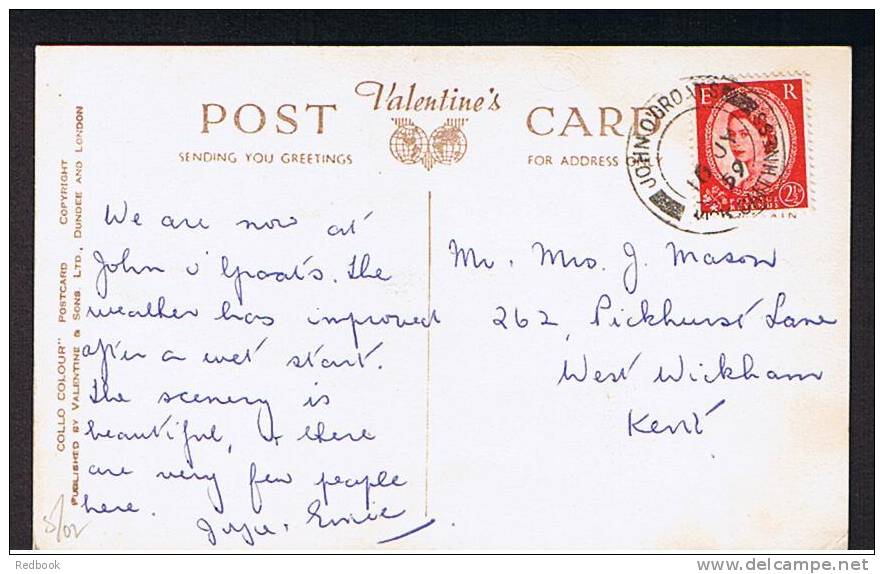 Valentine's
POST CARD
SENDING YOU GREETINGS
FOR ADDRESS ONLY
COLLO COLOUR" POSTCARD COPYRIGHT
PUBLISHED BY VALENTINE & SONS. LTD., DUNDEE AND LONDON
JOHN O'GRO
E R
2½
We are now at
John o' Groats. The
weather has improved
after a wet start.
The scenery is
beautiful, + there
are very few people
here.
Ernie
Mr. Mrs. J. Mason
262, Pickhurst Lane
West Wickham
Kent
5/02
Redbook
delcampe.net